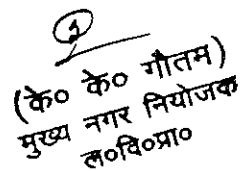 1
(के० के० गौतम)
मुख्य नगर नियोजक
ल०वि०प्रा०